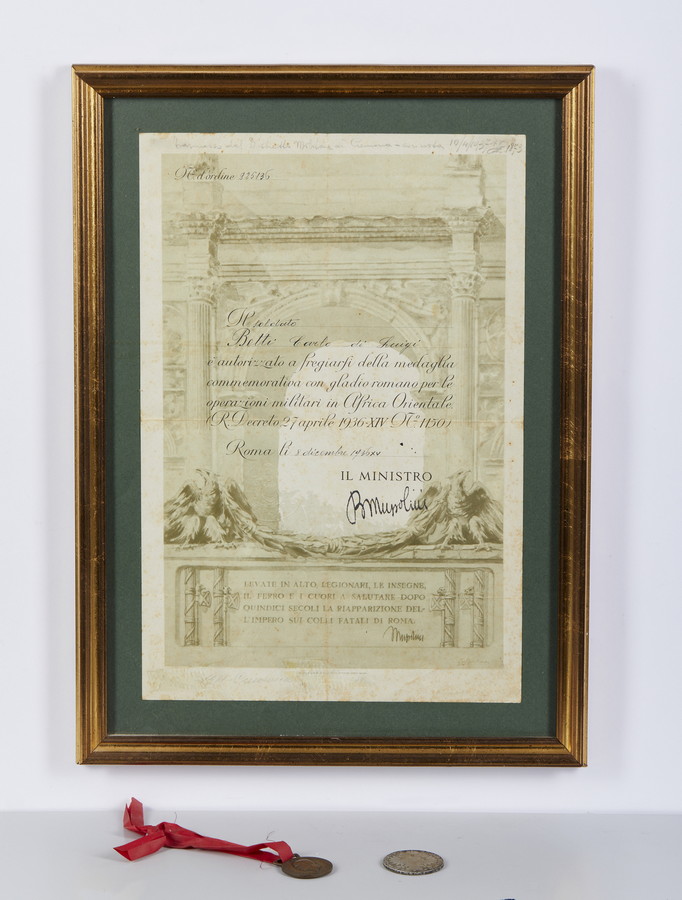 N. d'ordine 225136
Il soldato
Betti Carlo di Luigi
è autorizzato a fregiarsi della medaglia
commemorativa con gladio romano per le
operazioni militari in Africa Orientale
(R. Decreto 27 aprile 1936-XIV N.º 1150)
Roma li 3 dicembre
IL MINISTRO
B Mussolini
LEVATE IN ALTO, LEGIONARI, LE INSEGNE,
IL FERRO E I CUORI A SALUTARE DOPO
QUINDICI SECOLI LA RIAPPARIZIONE DEL-
L'IMPERO SUI COLLI FATALI DI ROMA.
Mussolini